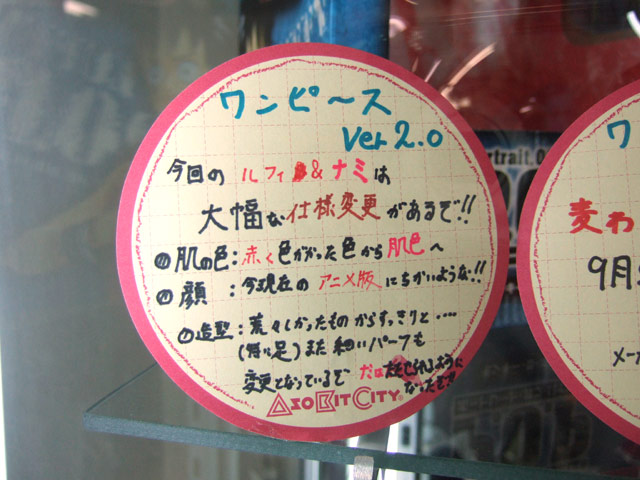 ワンピース
ver 2.0
今回の ルフィ & ナミは
大幅な仕様変更があるぞ!!
肌の色:赤く色がかった色から肌色へ
顔 :今現在のアニメ版にちかいような!!
造型:荒々しかったものからすっきりと....
(特に足)また 細いパーツも
変更となっているぞ
ASOBITCITY
trait.
ワ
麦わ
9月
メー